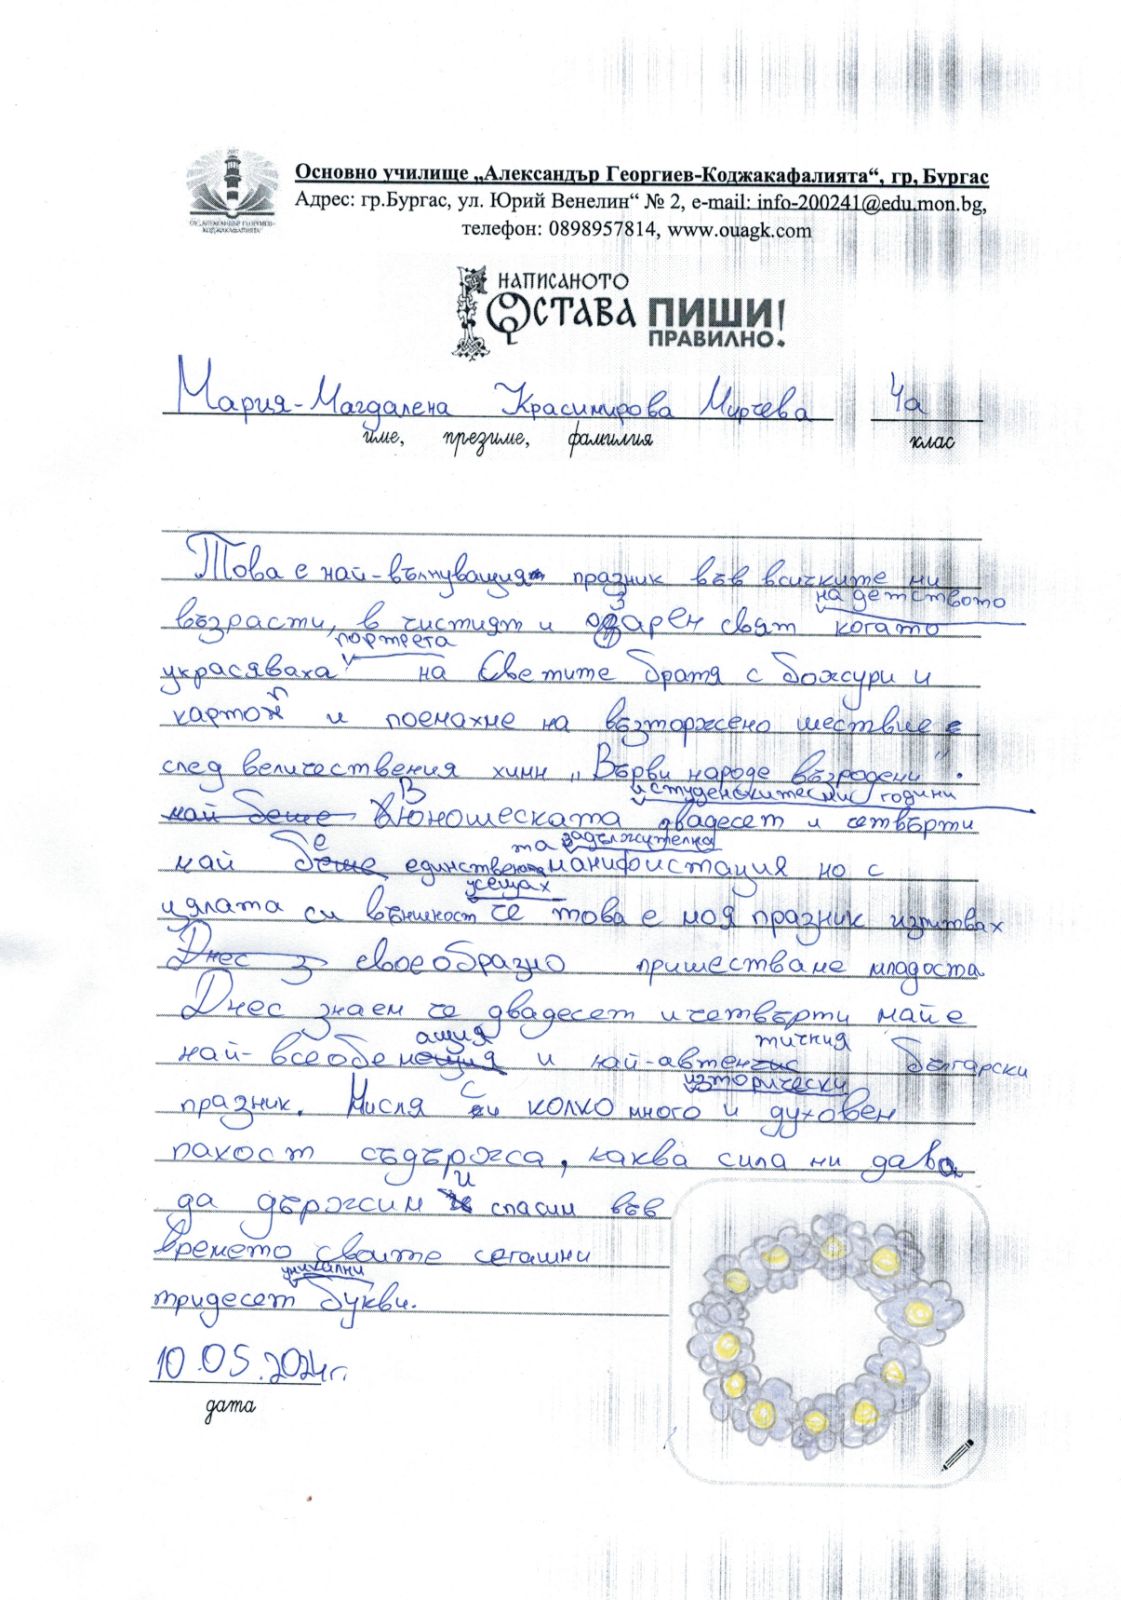 Основно училище „Александър Георгиев-Коджакафалията“, гр, Бургас
Адрес: гр.Бургас, ул. Юрий Венелин“ № 2, e-mail: info-200241@edu.mon.bg,
телефон: 0898957814, www.ouagk.com
НАПИСАНОТО
ОСТАВА ПИШИ
ПРАВИЛНО!
Мария-Магдалена Красимирова Мирчева 4а
име, презиме, фамилия клас
Това е най-вълнуващия празник във всичките ни
на детството
възрасти, в чистият и озарен свят когато
портрета
украсяваха на Светите братя с божури и
картон и поемахме на възторжено шествие
след величествения химн „Върви народе възродени".
и студентските ми години
май беше В юношеската двадесет и четвърти
задължителна
май бе единствената манифистация но с
усещах
цялата си външност че това е моя празник изпитвах
Днес своеобразно пришестваме младоста
Днес знаем че двадесет и четвърти май е
ащия тичния
най-всеобемащия и най-автен български
изторически
празник. Мисля си колко много и духовен
пахост съдържа, каква сила ни дава
да държим и спасим във
времето своите сегашни
уникални
тридесет букви.
10.05.2024г.
дата